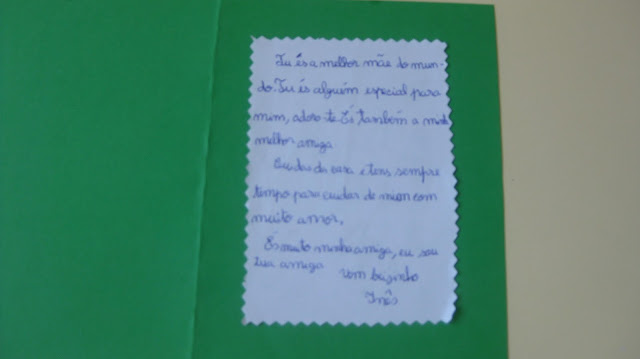 Tu és a melhor mãe do mun-
do. Tu és alguém especial para
mim, adoro-te. És também a
melhor amiga
Cuidas da casa e tens sempre
tempo para cuidar de mim com
muito amor.
És muito minha amiga, eu sou
tua amiga
Um beijinho
Inês